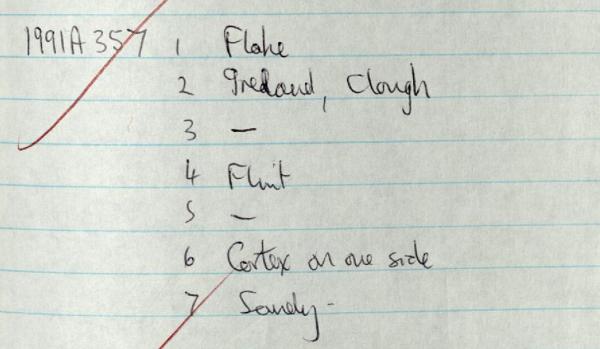 1991A 357 1 Flake
2 Ireland, Clough
3 —
4 Flint
5 —
6 Cortex on one side
7 Sandy -